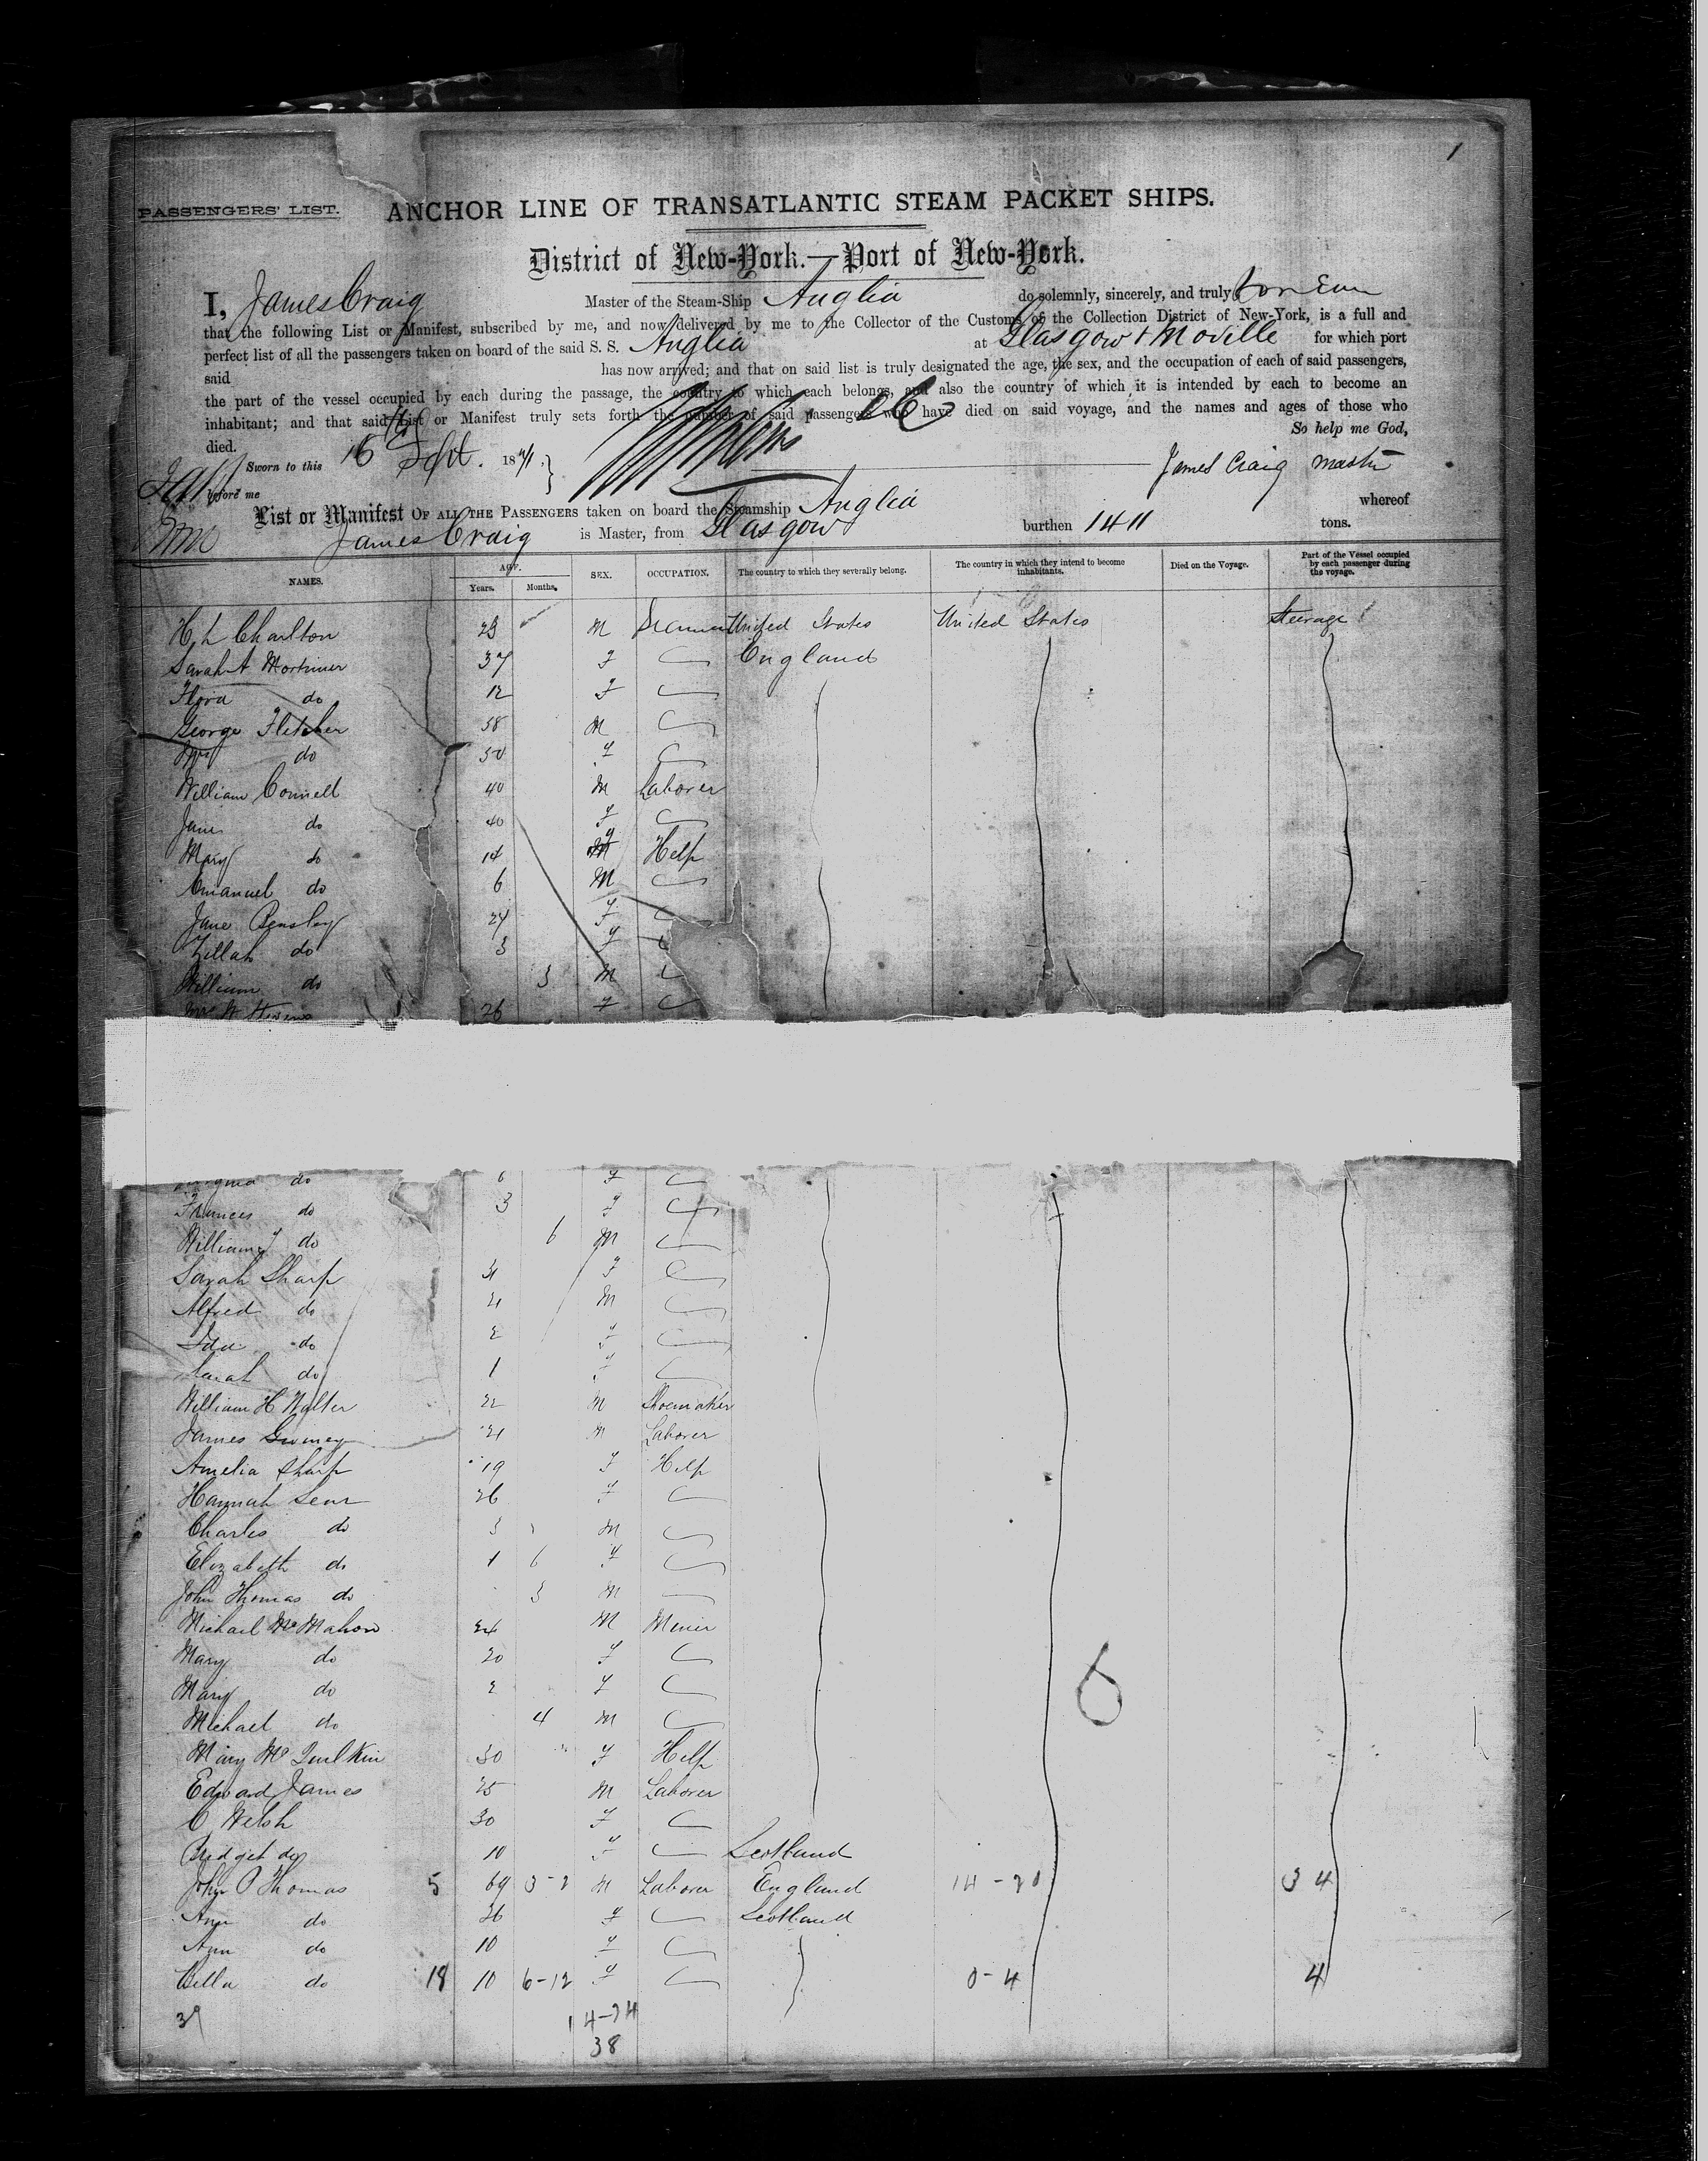 1
PASSENGERS' LIST.
ANCHOR LINE OF TRANSATLANTIC STEAM PACKET SHIPS.
District of New-York.—Port of New-York.
I, James Craig Master of the Steam-Ship Anglia do solemnly, sincerely, and truly
that the following List or Manifest, subscribed by me, and now delivered by me to the Collector of the Customs of the Collection District of New-York, is a full and
perfect list of all the passengers taken on board of the said S. S. Anglia at Glasgow & Moville for which port
said has now arrived; and that on said list is truly designated the age, the sex, and the occupation of each of said passengers,
the part of the vessel occupied by each during the passage, the country to which each belongs, and also the country of which it is intended by each to become an
inhabitant; and that said List or Manifest truly sets forth the number of said passengers who have died on said voyage, and the names and ages of those who
died. So help me God,
Sworn to this 16 Sept. 1871 James Craig master
before me
List or Manifest OF ALL THE PASSENGERS taken on board the Steamship Anglia whereof
James Craig is Master, from Glasgow burthen 1411 tons.
NAMES. AGE. Years. Months. SEX. OCCUPATION. The country to which they severally belong. The country in which they intend to become inhabitants. Died on the Voyage. Part of the Vessel occupied by each passenger during the voyage.
Charlton 23 M United States United States Steerage
Sarah A Mortimer 37 F England
Flora do 12 F
George Fletcher 38 M
do 50 F
William Connell 40 M Laborer
Jane do 40 F
Mary do 14 F Help
Emanuel do 6 M
Jane Bensley 24 F
Zillah do 3 F
William do 3 M
26 F
do 6 F
Frances do 3 F
William do 6 M
Sarah Sharp F
Alfred do M
Ida do 2 F
Sarah do 1 F
William H Walter 22 M Shoemaker
James 21 M Laborer
Amelia Sharp 19 F Help
Hannah 26 F
Charles do 3 M
Elizabeth do 1 6 F
John Thomas do 3 M
Michael McMahon 24 M Miner
Mary do 20 F
Mary do 2 F
Michael do 4 M
Mary 30 F Help
Edward James 25 M Laborer
C Welsh 30 F
Bridget do 10 F Scotland
John P Thomas 5 69 M Laborer England 34
Ann do 36 F Scotland
Ann do 10 F
Bella do 18 10 6-12 F 0-4 4
6
38